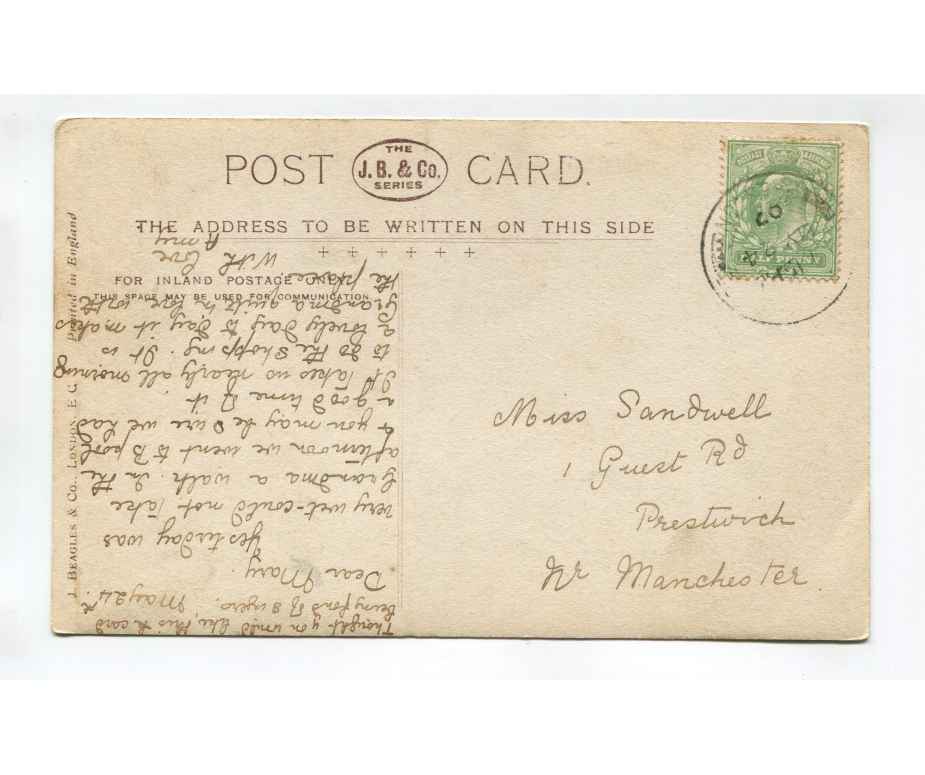 POST CARD.
THE
J.B. & Co.
SERIES
THE ADDRESS TO BE WRITTEN ON THIS SIDE
FOR INLAND POSTAGE ONLY
THIS SPACE MAY BE USED FOR COMMUNICATION.
J. BEAGLES & Co., LONDON, E.C.
Printed in England
HALF PENNY
07
Miss Sandwell
1 Guest Rd
Prestwich
Nr Manchester
Thought you would like this P. card
being fond of
May 24th
Dear Mary.
Yesterday was
very wet could not take
Grandma a walk. In the
afternoon we went to B'pool
& you may be sure we had
a good time of it
It takes us nearly all morning
to do the shopping. It is
a lovely day to day it makes
Grandma quite in love with
the place.
With
love
Amy